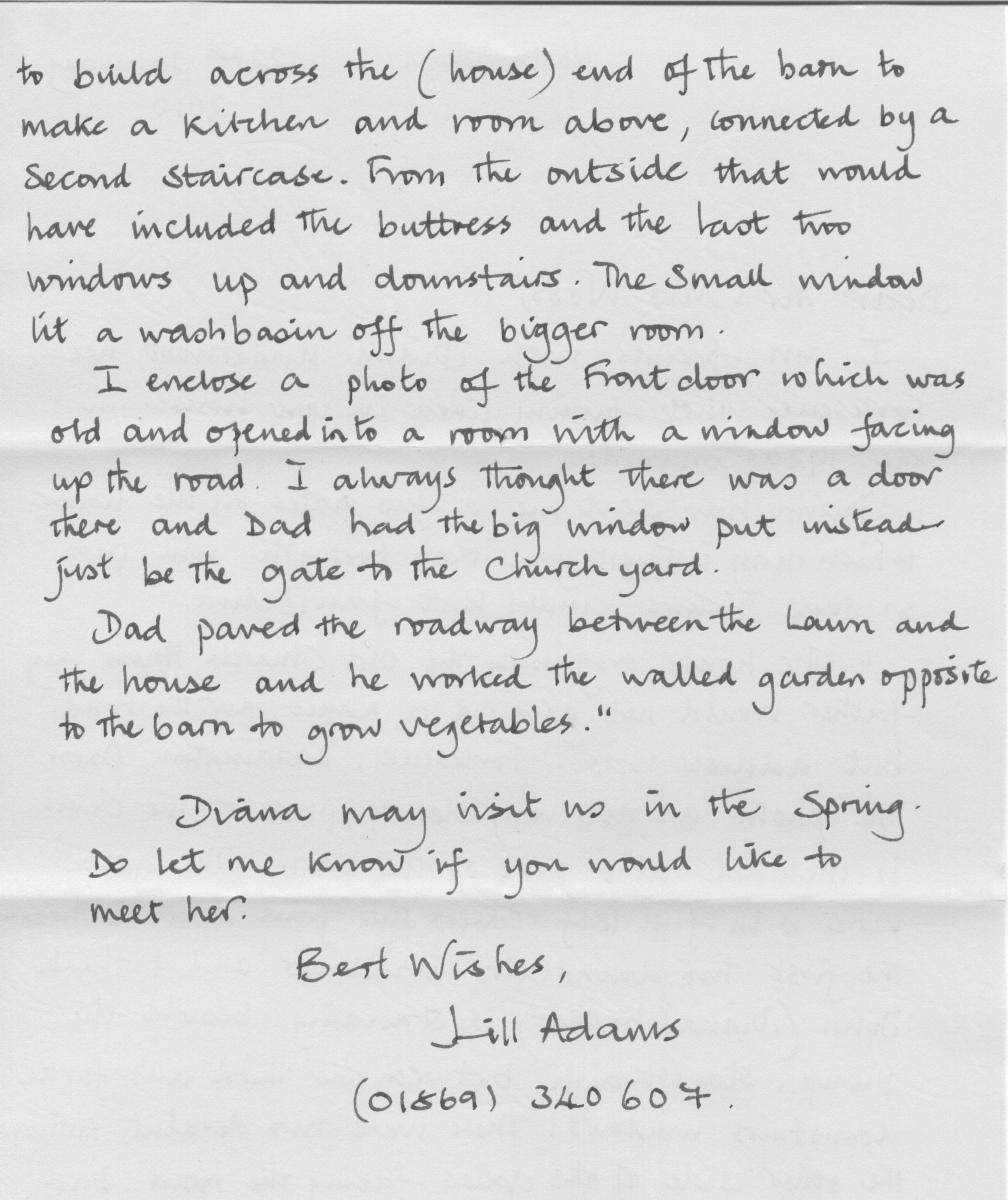 to build across the (house) end of the barn to
make a kitchen and room above, connected by a
second staircase. From the outside that would
have included the buttress and the last two
windows up and downstairs. The small window
lit a washbasin off the bigger room.
I enclose a photo of the Front door which was
old and opened into a room with a window facing
up the road. I always thought there was a door
there and Dad had the big window put instead
just be the gate to the Church yard.
Dad paved the roadway between the Lawn and
the house and he worked the walled garden opposite
to the barn to grow vegetables."
Diana may visit us in the Spring.
Do let me know if you would like to
meet her.
Best Wishes,
Jill Adams
(01869) 340 607.